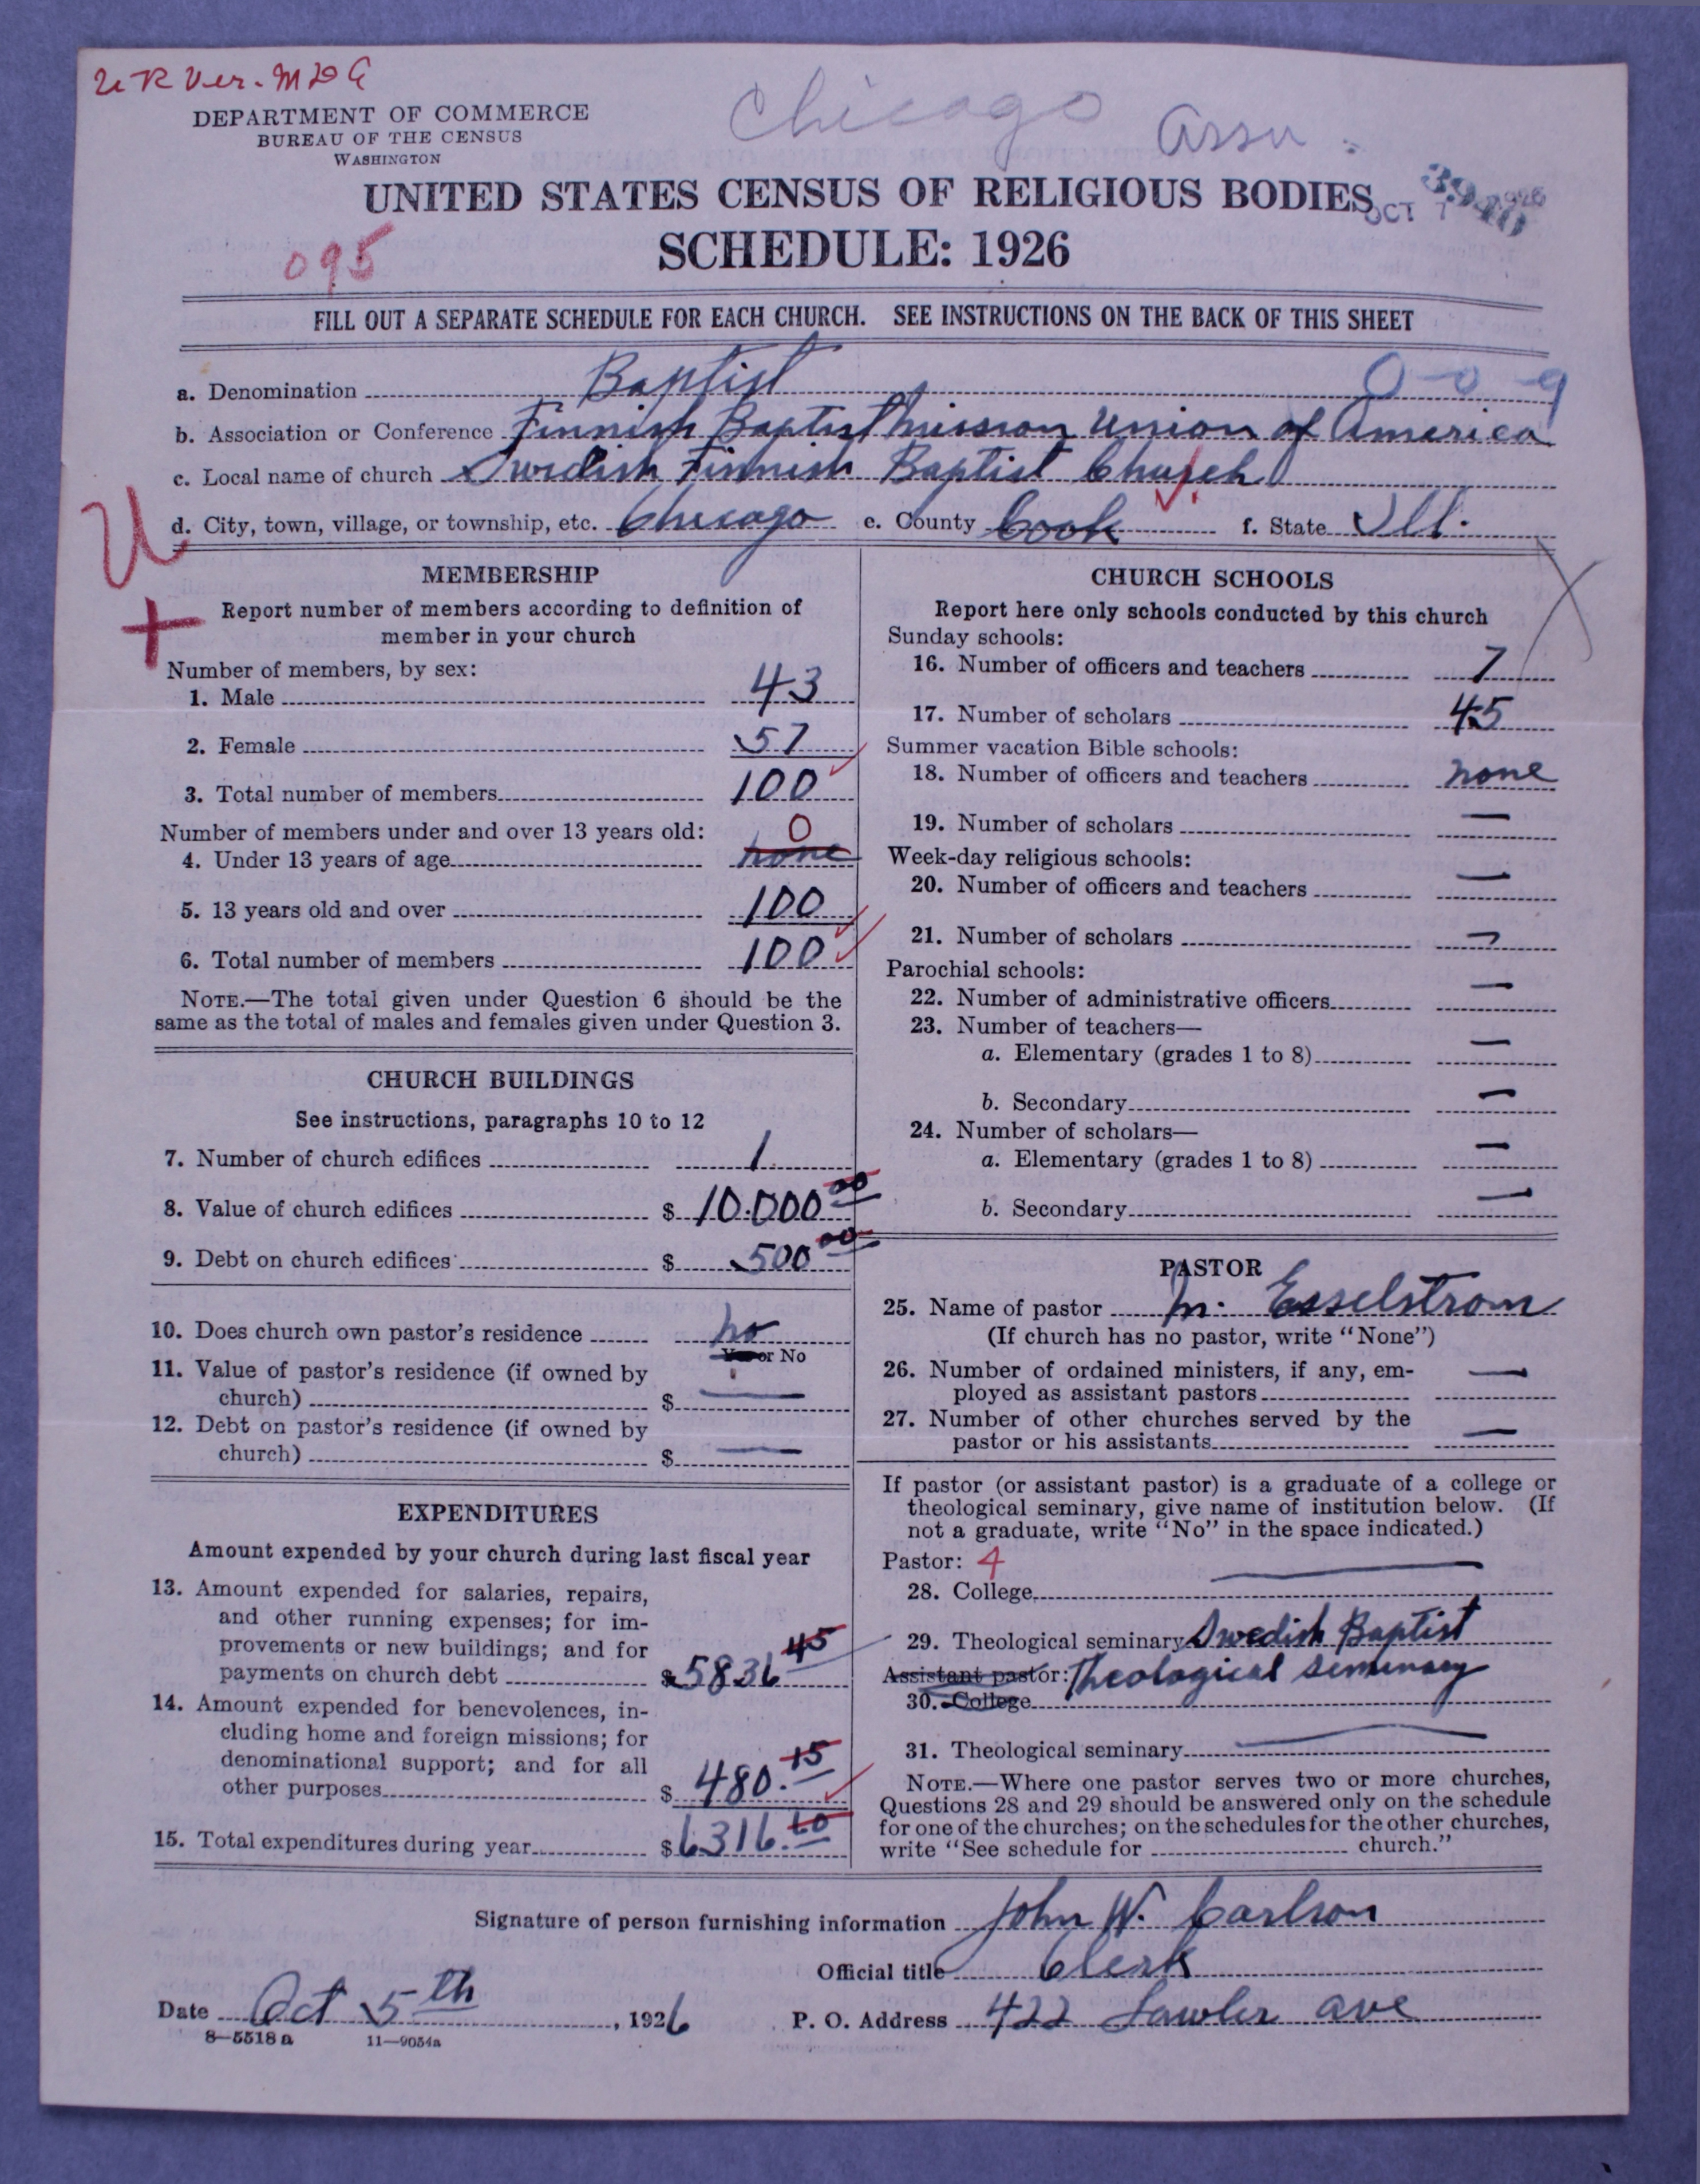 DEPARTMENT OF COMMERCE
BUREAU OF THE CENSUS
WASHINGTON
Chicago Assn.
UNITED STATES CENSUS OF RELIGIOUS BODIES
OCT 7 1926
SCHEDULE: 1926
095
FILL OUT A SEPARATE SCHEDULE FOR EACH CHURCH. SEE INSTRUCTIONS ON THE BACK OF THIS SHEET
a. Denomination Baptist 0-0-9
b. Association or Conference Finnish Baptist Mission Union of America
c. Local name of church Swedish Finnish Baptist Church
d. City, town, village, or township, etc. Chicago e. County Cook f. State Ill.
U
MEMBERSHIP
Report number of members according to definition of
member in your church
Number of members, by sex:
1. Male 43
2. Female 57
3. Total number of members 100
Number of members under and over 13 years old: 0
4. Under 13 years of age none
5. 13 years old and over 100
6. Total number of members 100
NOTE.—The total given under Question 6 should be the
same as the total of males and females given under Question 3.
CHURCH BUILDINGS
See instructions, paragraphs 10 to 12
7. Number of church edifices 1
8. Value of church edifices $ 10.000 00
9. Debt on church edifices $ 500 00
10. Does church own pastor's residence no
Yes or No
11. Value of pastor's residence (if owned by
church) $ —
12. Debt on pastor's residence (if owned by
church) $ —
EXPENDITURES
Amount expended by your church during last fiscal year
13. Amount expended for salaries, repairs,
and other running expenses; for im-
provements or new buildings; and for
payments on church debt $ 5836 45
14. Amount expended for benevolences, in-
cluding home and foreign missions; for
denominational support; and for all
other purposes $ 480.15
15. Total expenditures during year $ 6316.60
CHURCH SCHOOLS
Report here only schools conducted by this church
Sunday schools:
16. Number of officers and teachers 7
17. Number of scholars 45
Summer vacation Bible schools:
18. Number of officers and teachers none
19. Number of scholars —
Week-day religious schools:
20. Number of officers and teachers —
21. Number of scholars —
Parochial schools:
22. Number of administrative officers —
23. Number of teachers—
a. Elementary (grades 1 to 8) —
b. Secondary —
24. Number of scholars—
a. Elementary (grades 1 to 8) —
b. Secondary —
PASTOR
25. Name of pastor M. Esselstrom
(If church has no pastor, write "None")
26. Number of ordained ministers, if any, em-
ployed as assistant pastors —
27. Number of other churches served by the
pastor or his assistants —
If pastor (or assistant pastor) is a graduate of a college or
theological seminary, give name of institution below. (If
not a graduate, write "No" in the space indicated.)
Pastor: 4
28. College —
29. Theological seminary Swedish Baptist
Assistant pastor: Theological Seminary
30. College
31. Theological seminary —
NOTE.—Where one pastor serves two or more churches,
Questions 28 and 29 should be answered only on the schedule
for one of the churches; on the schedules for the other churches,
write "See schedule for church."
Signature of person furnishing information John W. Carlson
Official title Clerk
Date Oct 5th, 1926 P. O. Address 422 Lawler ave
8—5518 a 11—9054a